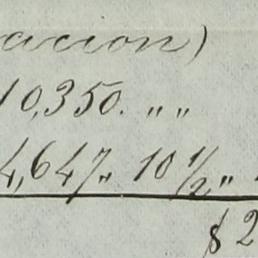 acion)
10,350. „ „
4,647„ 10 1/2 „
$ 2